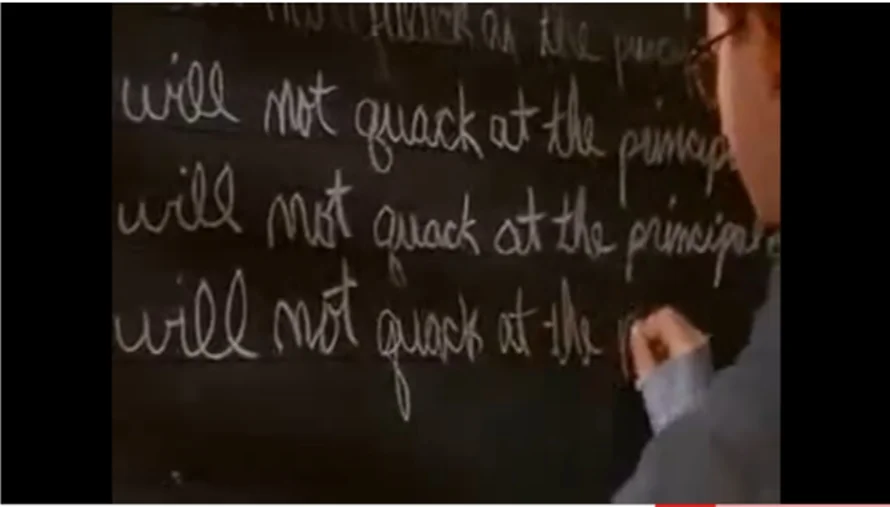 not quack at the
will not quack at the princip
will not quack at the principal
will not quack at the